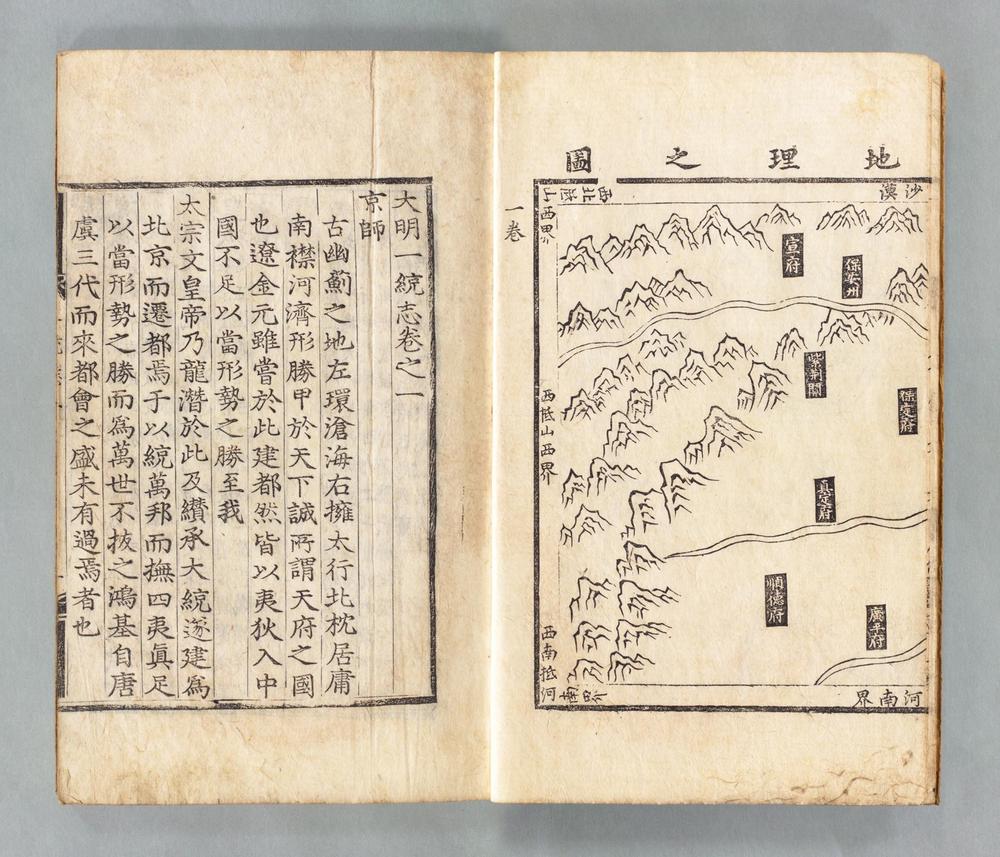 地理之圖
沙漠
西北抵山西界
一卷
宣府
保安州
紫荊關
保定府
西抵山西界
真定府
順德府
廣平府
西南抵河南界
河南界
大明一統志卷之一
京師
古幽薊之地左環滄海右擁太行北枕居庸
南襟河濟形勝甲於天下誠所謂天府之國
也遼金元雖嘗於此建都然皆以夷狄入中
國不足以當形勢之勝至我
太宗文皇帝乃龍潛於此及纘承大統遂建為
北京而遷都焉于以統萬邦而撫四夷真足
以當形勢之勝而為萬世不拔之鴻基自唐
虞三代而來都會之盛未有過焉者也